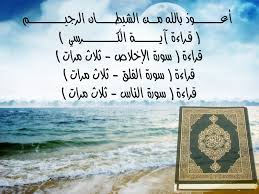 أعوذ بالله من الشيطان الرجيم
( قراءة آية الكرسي )
قراءة ( سورة الإخلاص - ثلاث مرات )
قراءة ( سورة الفلق - ثلاث مرات )
قراءة ( سورة الناس - ثلاث مرات )